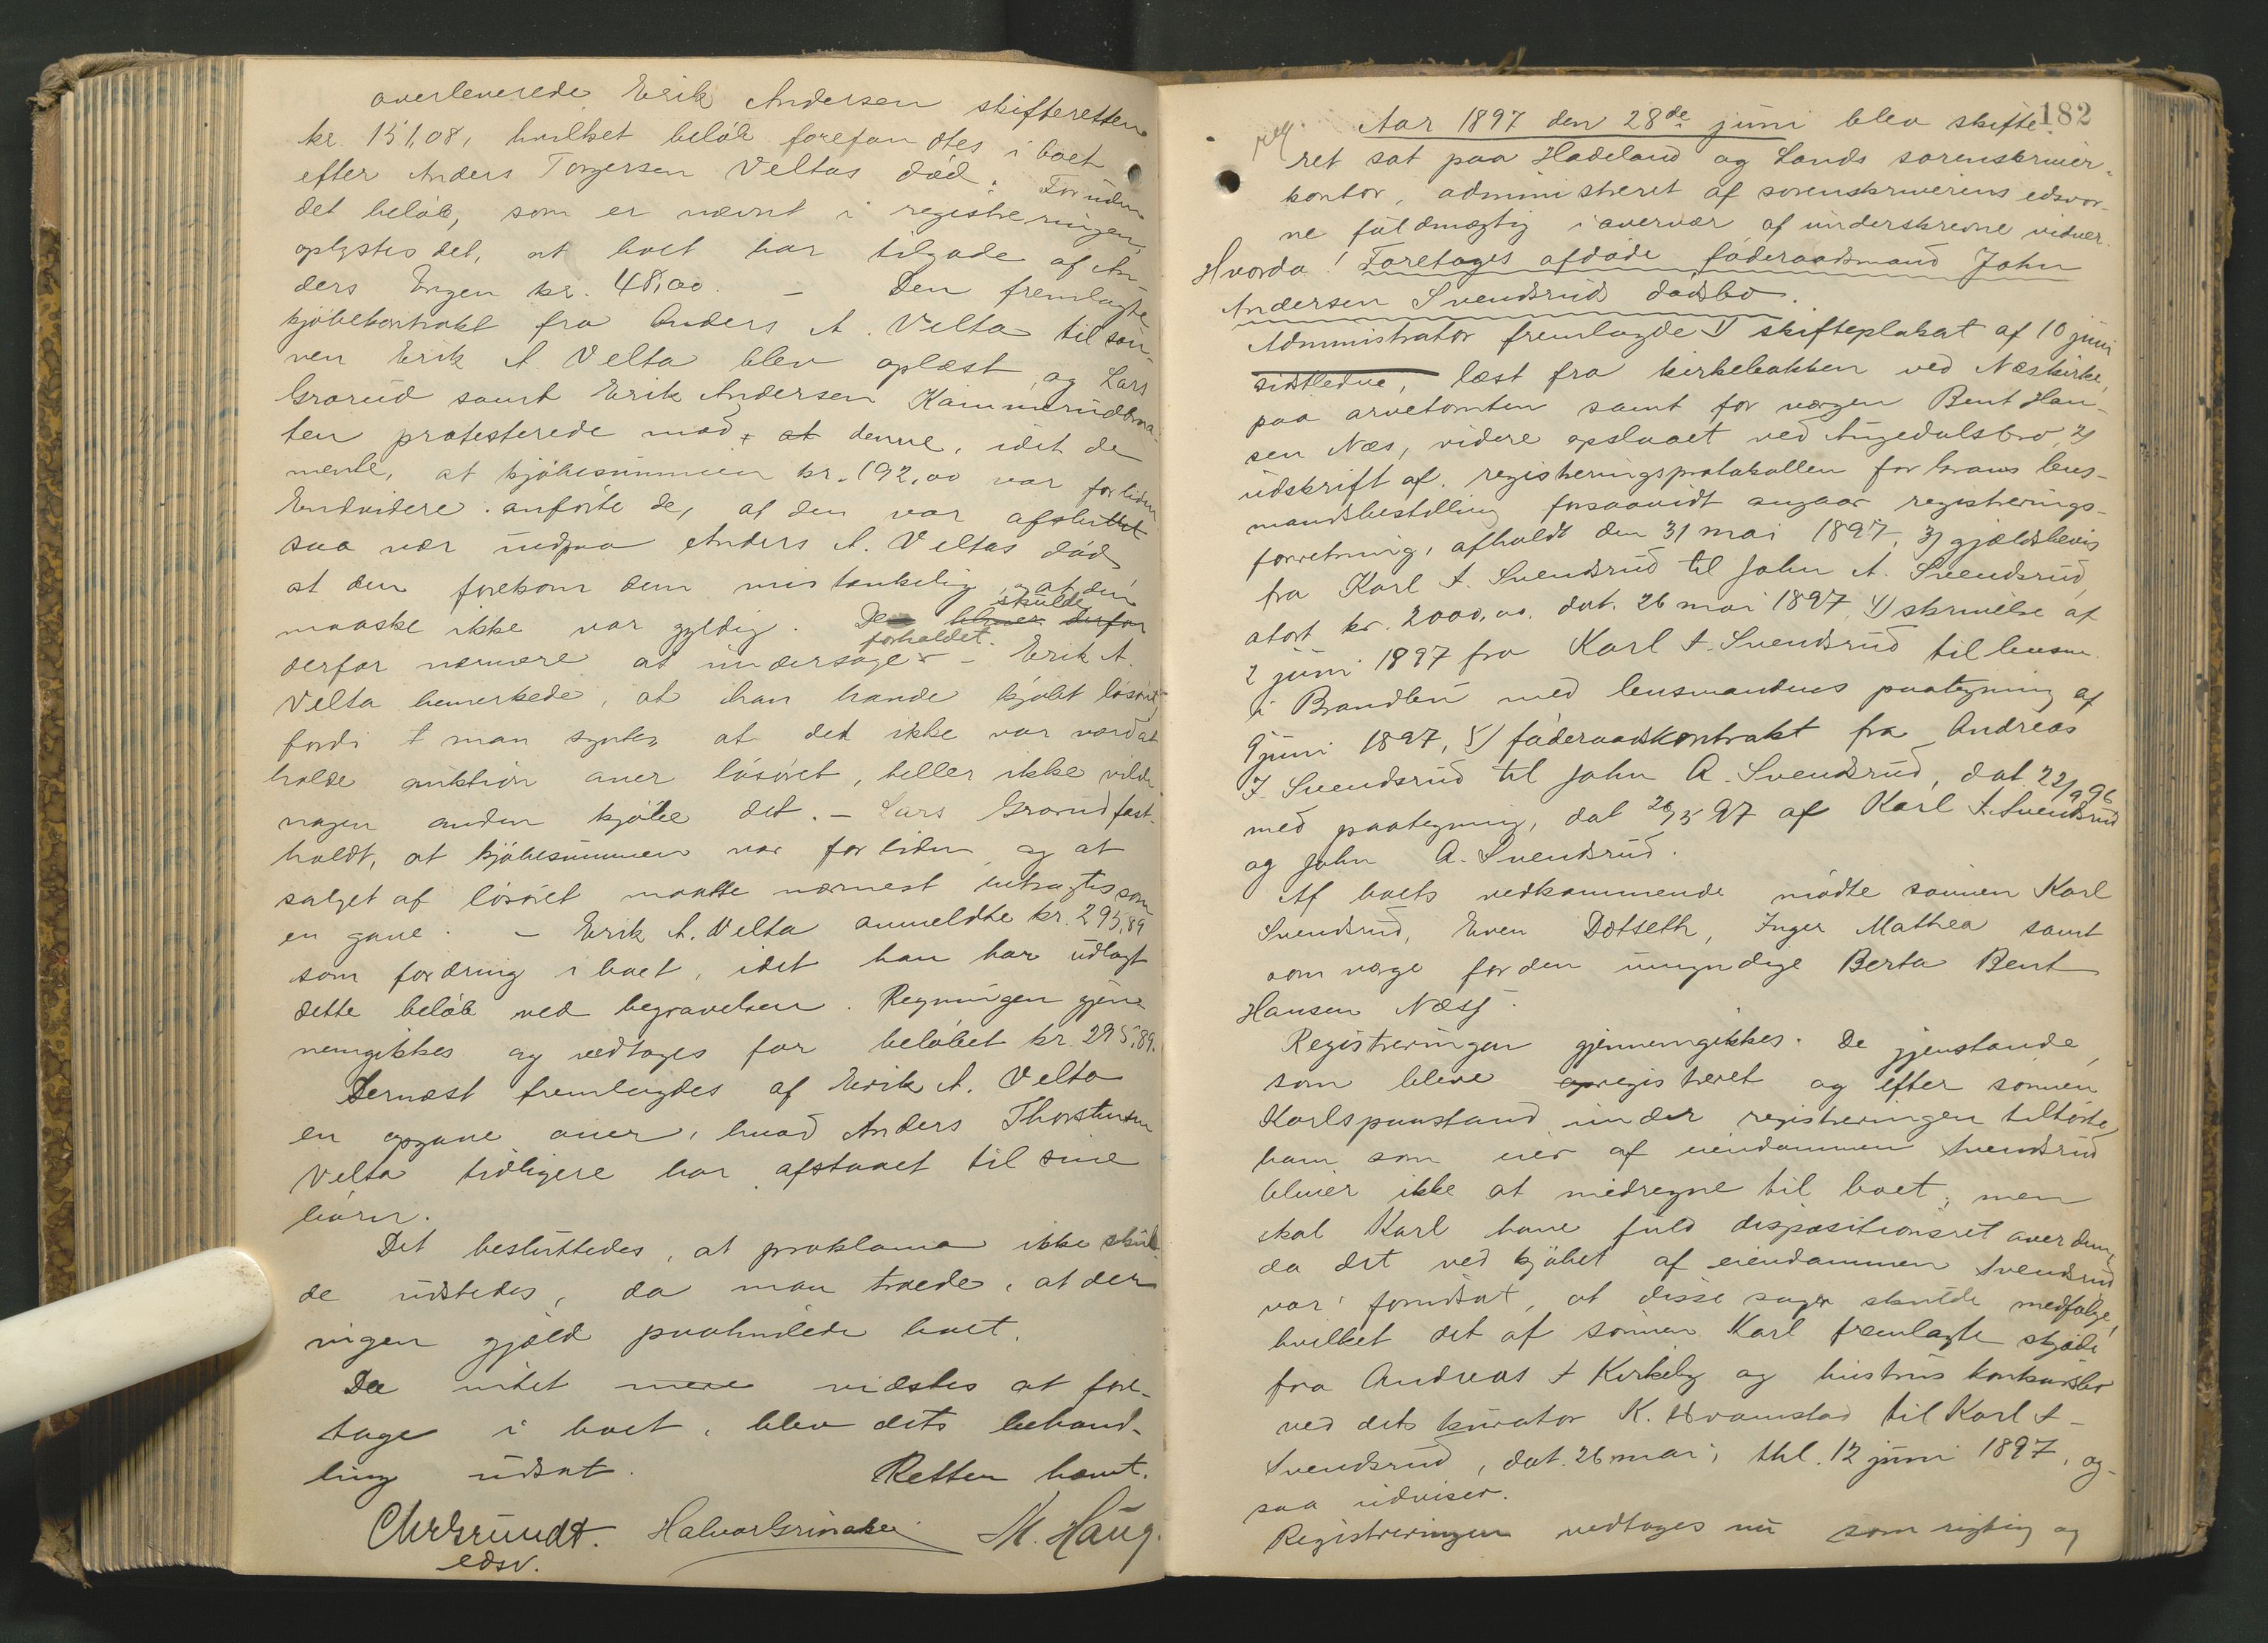 overleverede Erik Andersen skifteretten
kr. 151,08, hvilket beløb forefandtes i boet
efter Anders Torgersen Veltas død. Foruden
det beløb, som er nævnt i registreringen,
oplystes det, at boet har tilgode af An-
ders Engen kr. 48,00. – Den fremlagte
kjøbekontrakt fra Anders A. Velta til søn-
nen Erik A. Velta blev oplæst, og Lars
Grorud samt Erik Andersen Kammerud
ten protesterede mod at denne, idet de
mente, at kjøbesummen kr. 192,00 var for liden
Endvidere anførte de, at den var afsluttet
saa nær indpaa Anders A. Veltas død
at den forekom dem mistænkelig, og at den
maaske ikke var gyldig. De bliver derfor skulde
derfor nærmere at undersøge forholdet. – Erik A.
Velta bemerkede, at han havde kjøbt løsøret,
fordi man syntes at det ikke var værd at
holde auktion over løsøret, heller ikke vilde
nogen anden kjøbe det. – Lars Grorud fast-
holdt, at kjøbesummen var for liden og at
salget af løsøret maatte nærmest betragtes som
en gave. – Erik A. Velta anmeldte kr. 295,89
som fordring i boet, idet han har udlagt
dette beløb ved begravelsen. Regningen gjen-
nemgikkes og vedtoges for beløbet kr. 295,89.
Dernæst fremlagdes af Erik A. Velta
en opgave over, hvad Anders Thorstensen
Velta tidligere har afstaaet til sine
børn.
Det besluttedes, at proklama ikke skul-
de udstedes, da man troede, at der
ingen gjæld paahvilede boet.
Da intet mere vidstes at fore-
tage i boet, blev dets behand-
ling udsat. Retten hævet.
Chr Grundt. Halvor Grinaker M. Haug.
edsv.
182
reg. Aar 1897 den 28de juni blev skifte-
ret sat paa Hadeland og Lands sorenskriver-
kontor, administreret af sorenskriverens edsvor-
ne fuldmægtig i overvær af underskrevne vidner.
Hvorda! Foretoges afdøde føderaadsmand John
Andersen Svendsruds dødsbo.
Administrator fremlagde 1) skifteplakat af 10 juni
sidstledne, læst fra kirkebakken ved Næs kirke,
paa arvetomten samt for vergen Bent Han-
sen Næs, videre opslaaet ved Augedalsbro, 2)
udskrift af registreringsprotokollen for Grans lens-
mandsbestilling forsaavidt angaar registrerings-
forretning, afholdt den 31 mai 1897, 3) gjældsbevis
fra Karl A. Svendsrud til John A. Svendsrud,
stort kr. 2000,00, dat. 26 mai 1897, 4) skrivelse af
2 juni 1897 fra Karl A. Svendsrud til lensm.
i Brandbu med lensmandens paategning af
9 juni 1897, 5) føderaadskontrakt fra Andreas
J. Svendsrud til John A. Svendsrud, dat. 22/9 96
med paategning, dat 26/5 97 af Karl A. Svendsrud
og John A. Svendsrud.
Af boets vedkommende mødte sønnen Karl
Svendsrud, Even Dotseth, Inger Mathea samt
som verge for den umyndige Berta Bent
Hansen Næss.
Registreringen gjennemgikkes. De gjenstande,
som bleve opregistreret og efter sønnen
Karls paastand under registreringen tilhørte
ham som eier af eiendommen Svendsrud
bliver ikke at medregne til boet, men
skal Karl have fuld dispositionsret over dem,
da det ved kjøbet af eiendommen Svendsrud
var forudsat, at disse sager skulde medfølge,
hvilket det af sønnen Karl fremlagte skjøde
fra Andreas A Kirkeby og hustrus konkursbo
ved dets kurator K. Hvamstad til Karl A-
Svendsrud, dat. 26 mai, thl. 12 juni 1897, og-
saa udviser.
Registreringen vedtoges nu som rigtig og